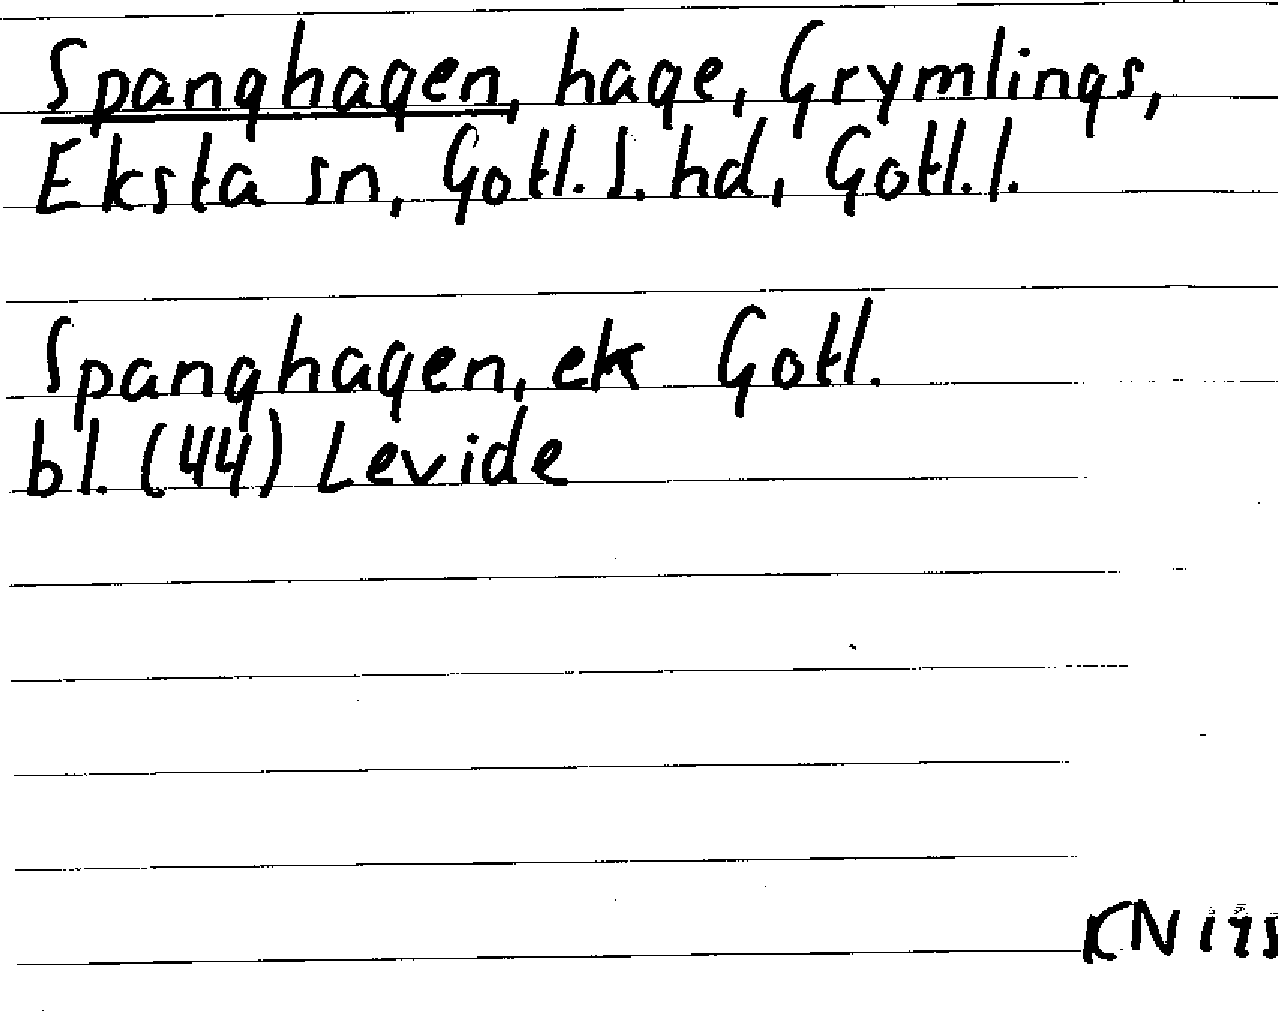 Spanghagen, hage, Grymlings,
Eksta sn, Gotl. S. hd, Gotl. l.
Spanghagen, ek Gotl.
bl. (44) Levide